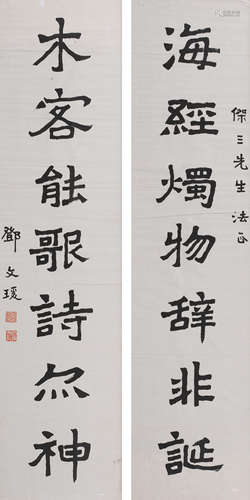 傑三先生 法正
海經燭物辞非誕
木客能歌詩尒神
鄧文瑗